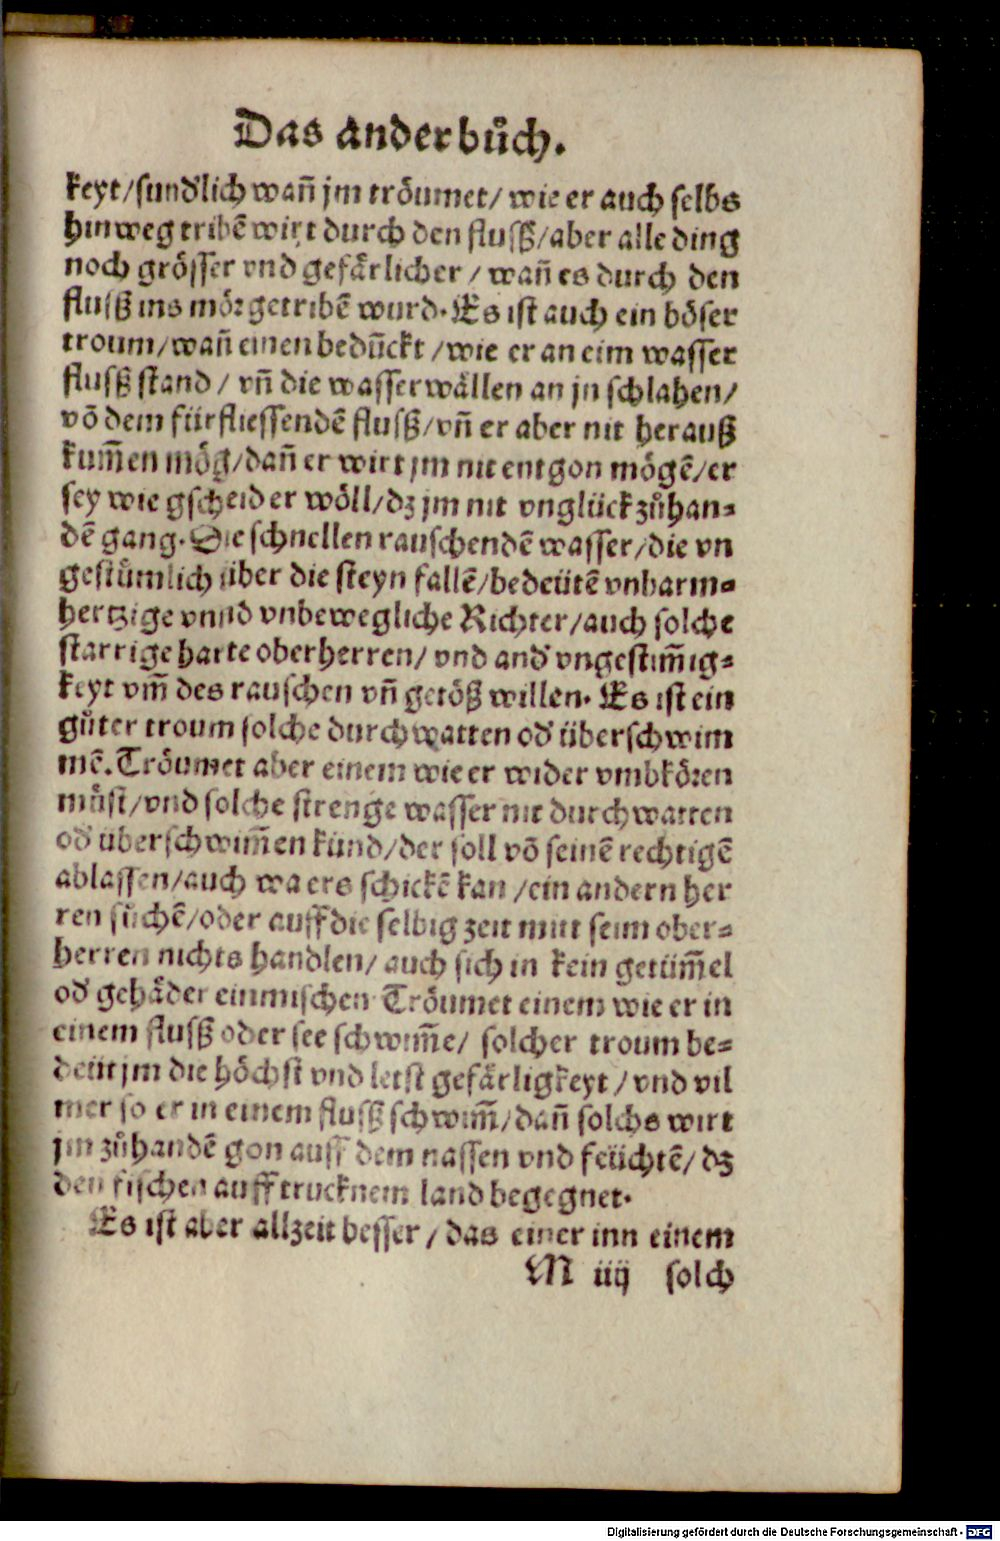 Das ander bůch.
keyt/sund'lich wañ jm tröumet/ wie er auch selbs
hinweg tribẽ wirt durch den fluſſz/aber alle ding
noch gröſſer vnd gefärlicher / wañ es durch den
fluſſz ins mör getribẽ wurd. Es iſt auch ein böſer
troum/wañ einen bedũckt /wie er an eim waſſer
fluſſz ſtand / vñ die waſſerwällen an jn ſchlahen/
võ dem fürflieſſendẽ fluſſz/vñ er aber nit herauß
kum̃en mög/dañ er wirt jm nit entgon mögẽ/er
ſey wie gſcheid er wöll/dz jm nit vnglück zůhan-
dẽ gang. Die ſchnellen rauſchendẽ waſſer/die vn
geſtümlich über die ſteyn fallẽ/bedeütẽ vnbarm-
hertzige vnnd vnbewegliche Richter/auch ſolche
ſtarrige harte oberherren/ vnd and' vngeſtim̃ig-
keyt vm̃ des rauſchen vñ getöß willen. Es iſt ein
gůter troum ſolche durchwatten od' überſchwim
mẽ. Tröumet aber einem wie er wider vmbkören
müſt/vnd ſolche ſtrenge waſſer nit durchwatten
od' überſchwim̃en künd/der ſoll võ ſeinẽ rechtigẽ
ablaſſen/auch wa ers ſchickẽ kan /ein andern her
ren ſůchẽ/oder auff die ſelbig zeit mitt ſeim ober-
herren nichts handlen/ auch ſich in kein getüm̃el
od' gehäder einmiſchen Tröumet einem wie er in
einem fluſſz oder ſee ſchwim̃e/ ſolcher troum be-
deüt jm die höchſt vnd letſt gefärligkeyt / vnd vil
mer ſo er in einem fluſſz ſchwim̃/dañ ſolchs wirt
jm zůhandẽ gon auff dem naſſen vnd feüchtẽ/ dz
den fiſchen auff trucknem land begegnet.
Es iſt aber allzeit beſſer / das einer inn einem
M iiij ſolch
Digitalisierung gefördert durch die Deutsche Forschungsgemeinschaft - DFG